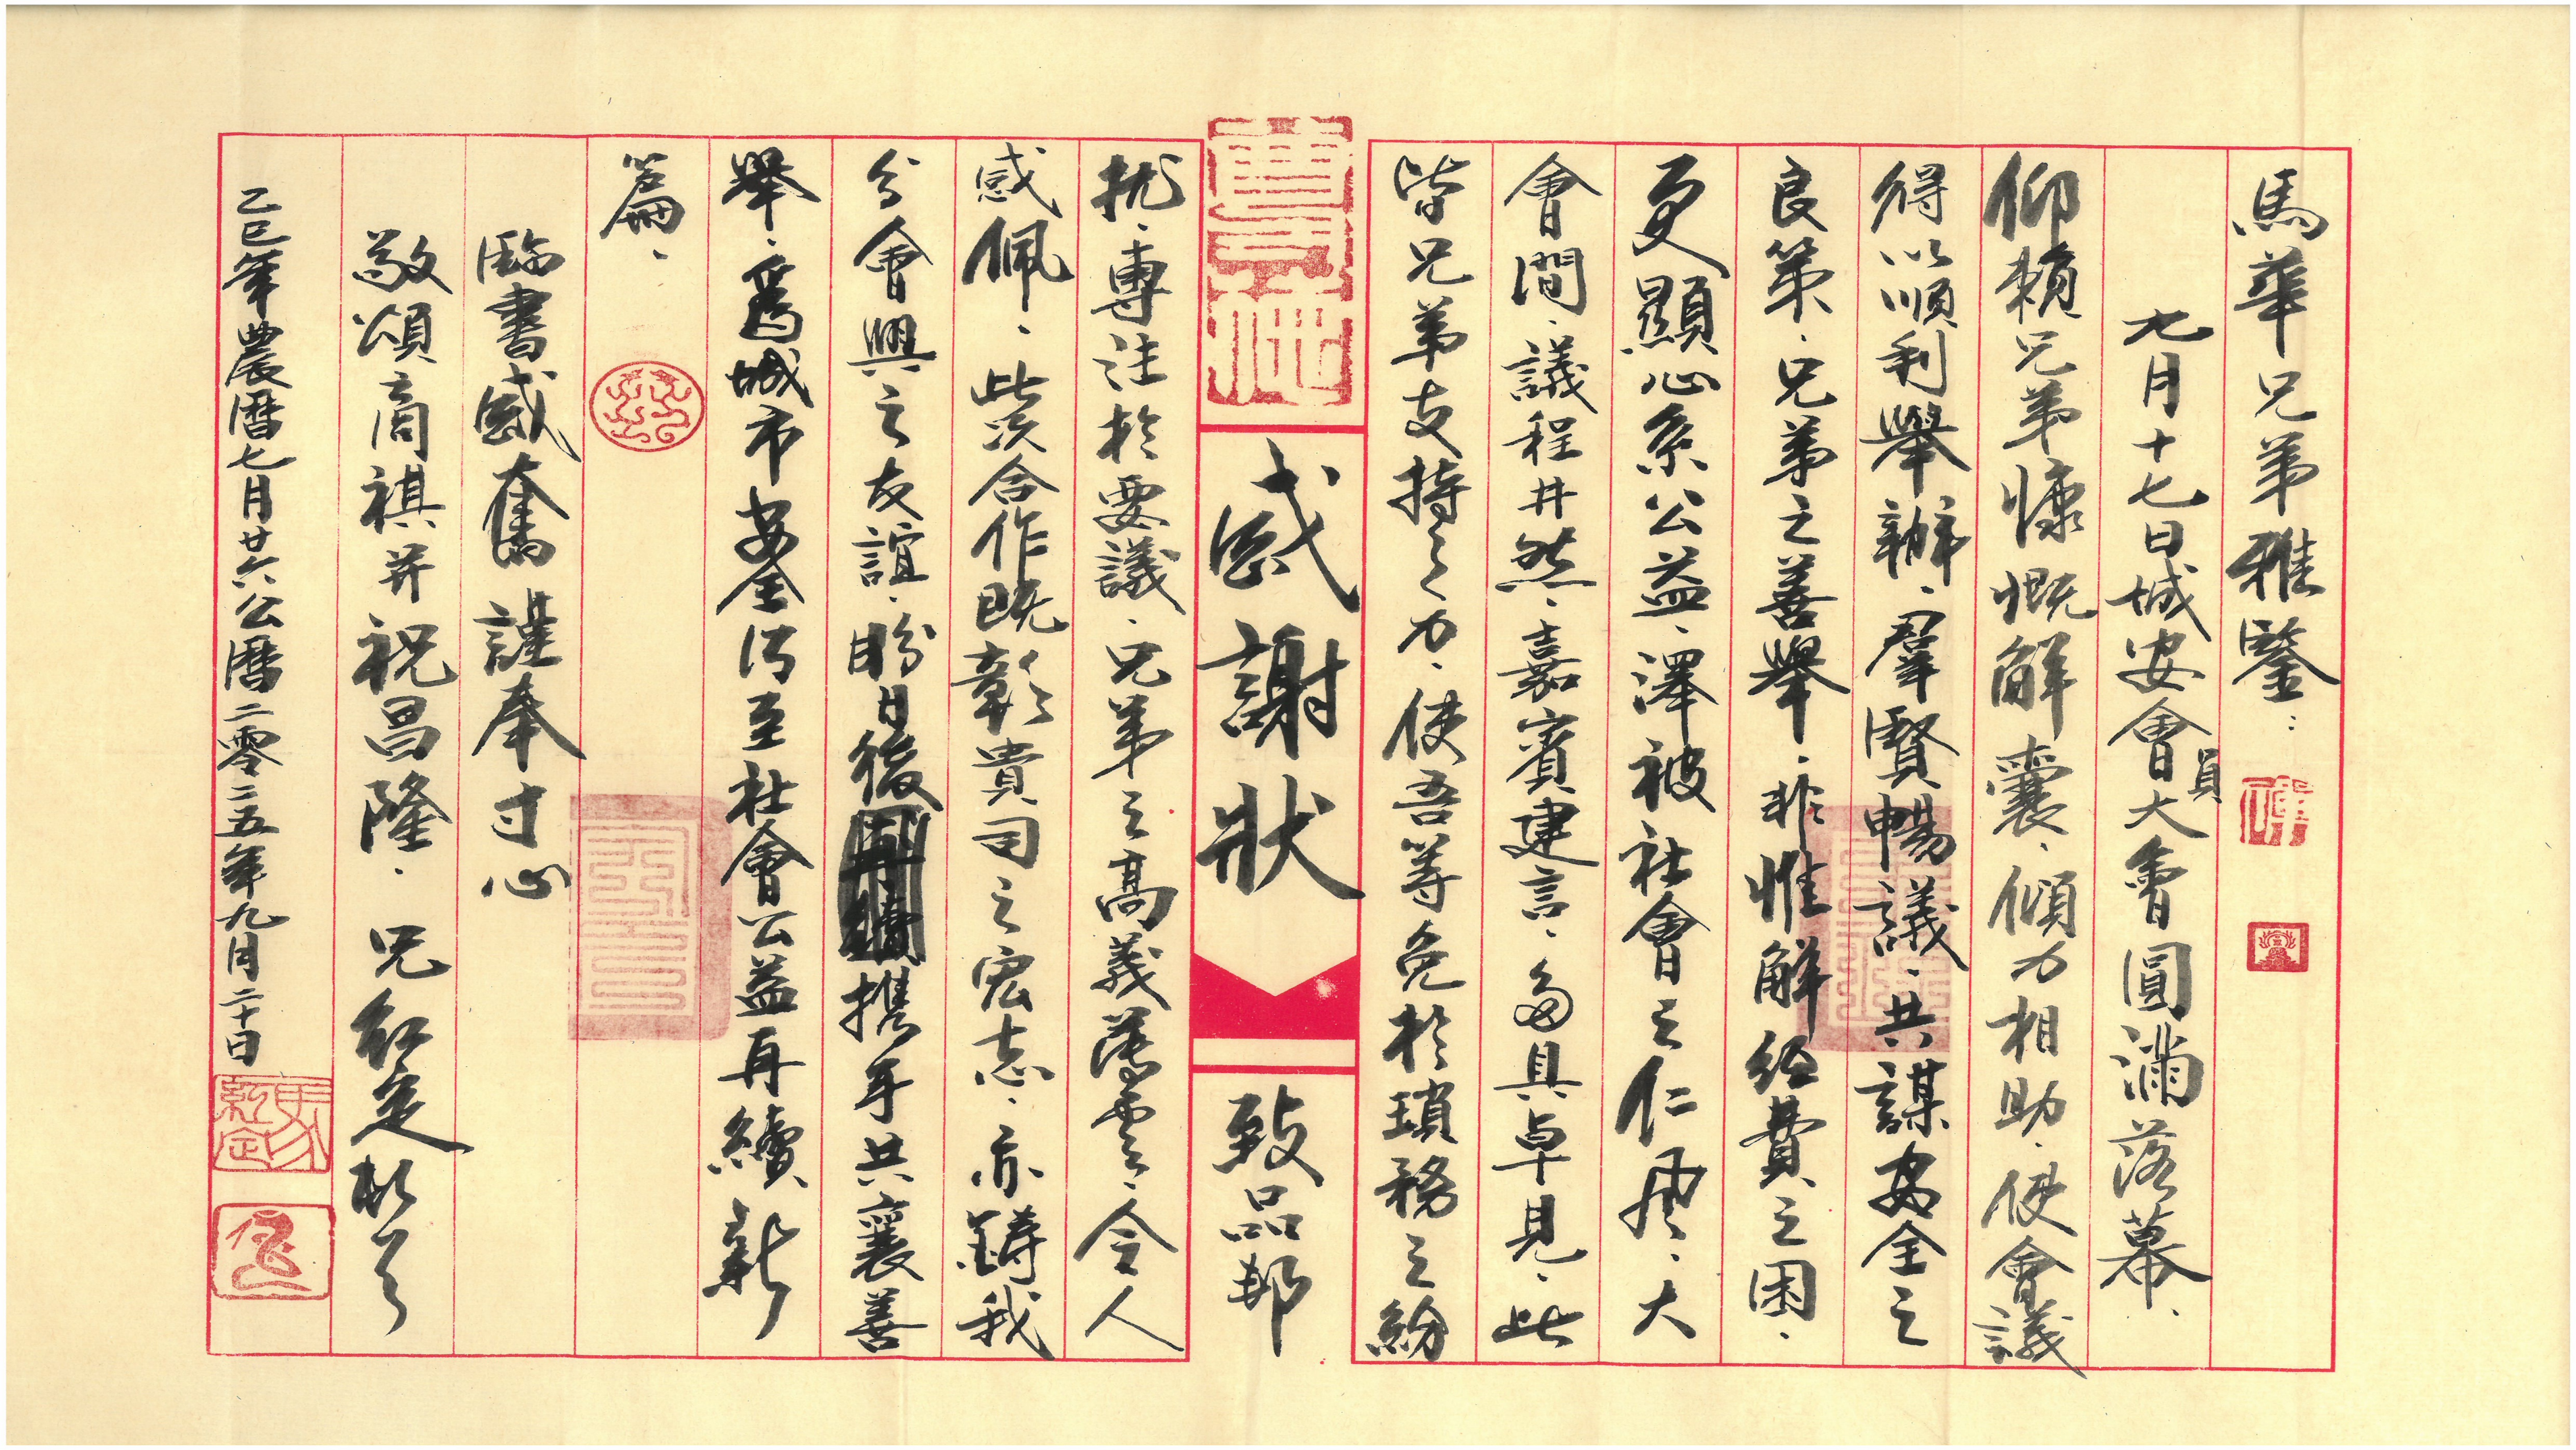 馬華兄弟雅鑒：
九月十七日城安會員大會圓滿落幕、
仰賴兄弟慷慨解囊、傾力相助、使會議
得以順利舉辦、羣賢暢議、共謀安全之
良策、兄弟之善舉、非惟解經費之困、
更顯心系公益、澤被社會之仁風、大
會間、議程井然、嘉賓建言、多具卓見、此
皆兄弟支持之力、使吾等免於瑣務之紛
感謝狀
致品郵
擾、專注於要議、兄弟之高義薄雲、令人
感佩、此次合作既彰貴司之宏志、亦鑄我
分會興之友誼、盼日後携手共襄善
舉、爲城市安全乃至社會公益再續新
篇、
臨書感奮謹奉寸心
敬頌商祺并祝昌隆、兄紅定
乙巳年農曆七月廿六公曆二零二五年九月二十日